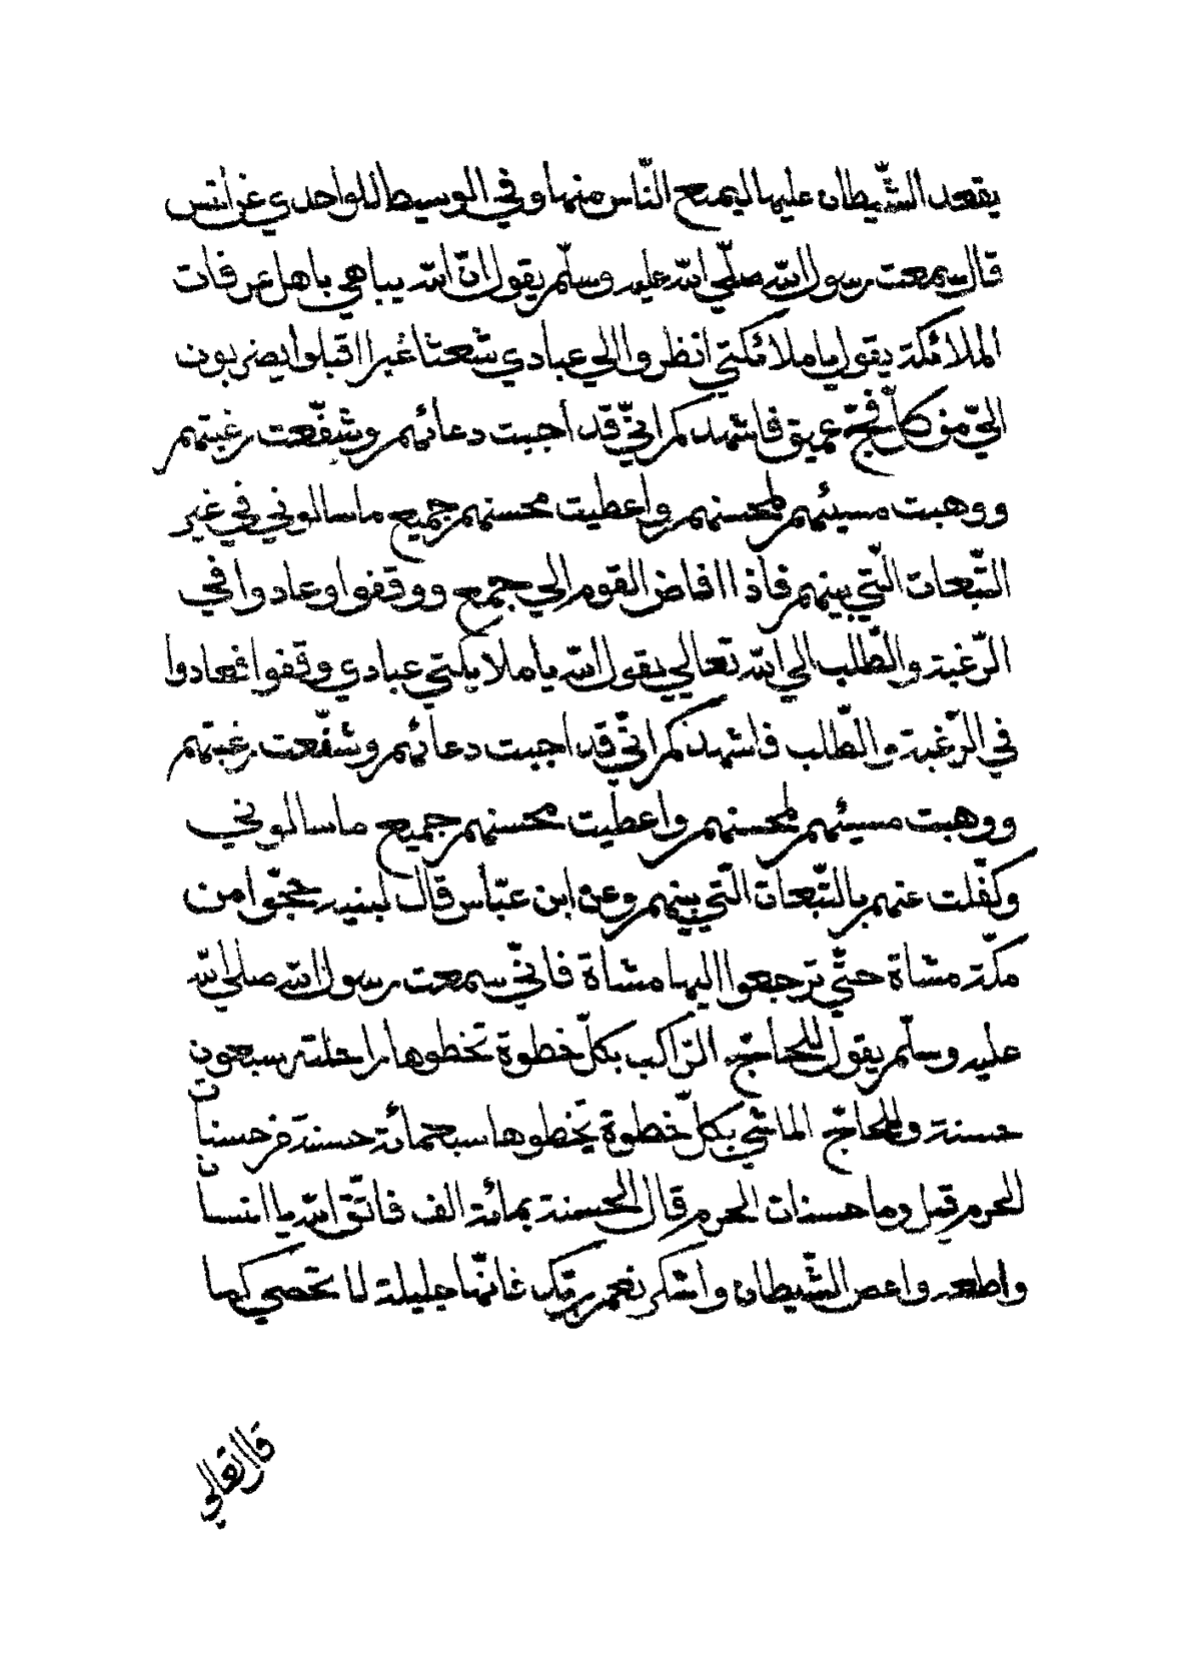 يقعد الشّيطان عليها ليمنع النّاس منها وفي الوسيط للواحدي عن انس
قال سمعت رسول الله صلّي الله عليه وسلّم يقول انّ الله يباهي باهل عرفات
الملائكة يقول يا ملائكتي انظروا الي عبادي شعثا غبرا اقبلوا يضربون
اليّ من كلّ فجّ عميق فاشهدكم انّي قد أجبت دعائهم وشفّعت رغبتهم
ووهبت مسيئهم لمحسنهم واعطيت محسنهم جميع ما سالوني في غير
التّبعات الّتي بينهم فاذا افاض القوم الي جمع ووقفوا وعادوا في
الرّغبة والطّلب الي الله تعالي يقول الله يا ملايكتي عبادي وقفوا فعادوا
في الرّغبة والطّلب فاشهدكم انّي قد أجبت دعائهم وشفّعت رغبتهم
ووهبت مسيئهم لمحسنهم واعطيت محسنهم جميع ما سالوني
وكفّلت عنهم بالتّبعات الّتي بينهم وعن ابن عبّاس قال لبنيه حجّوا من
مكّة مشاة حتّي ترجعوا اليها مشاة فانّي سمعت رسول الله صلي الله
عليه وسلّم يقول للحاجّ الرّاكب بكلّ خطوة تخطوها راحلته سبعون
حسنة وللحاجّ الماشي بكلّ خطوة يخطوها سبعمائة حسنة من حسنات
الحرم قيل وما حسنات الحرم قال الحسنة بمائة الف فاتّق الله يا انسان
واطعه واعص الشّيطان واشكر نعم ربّك فانّها جليلة لا تحصي كما
قال تعالي